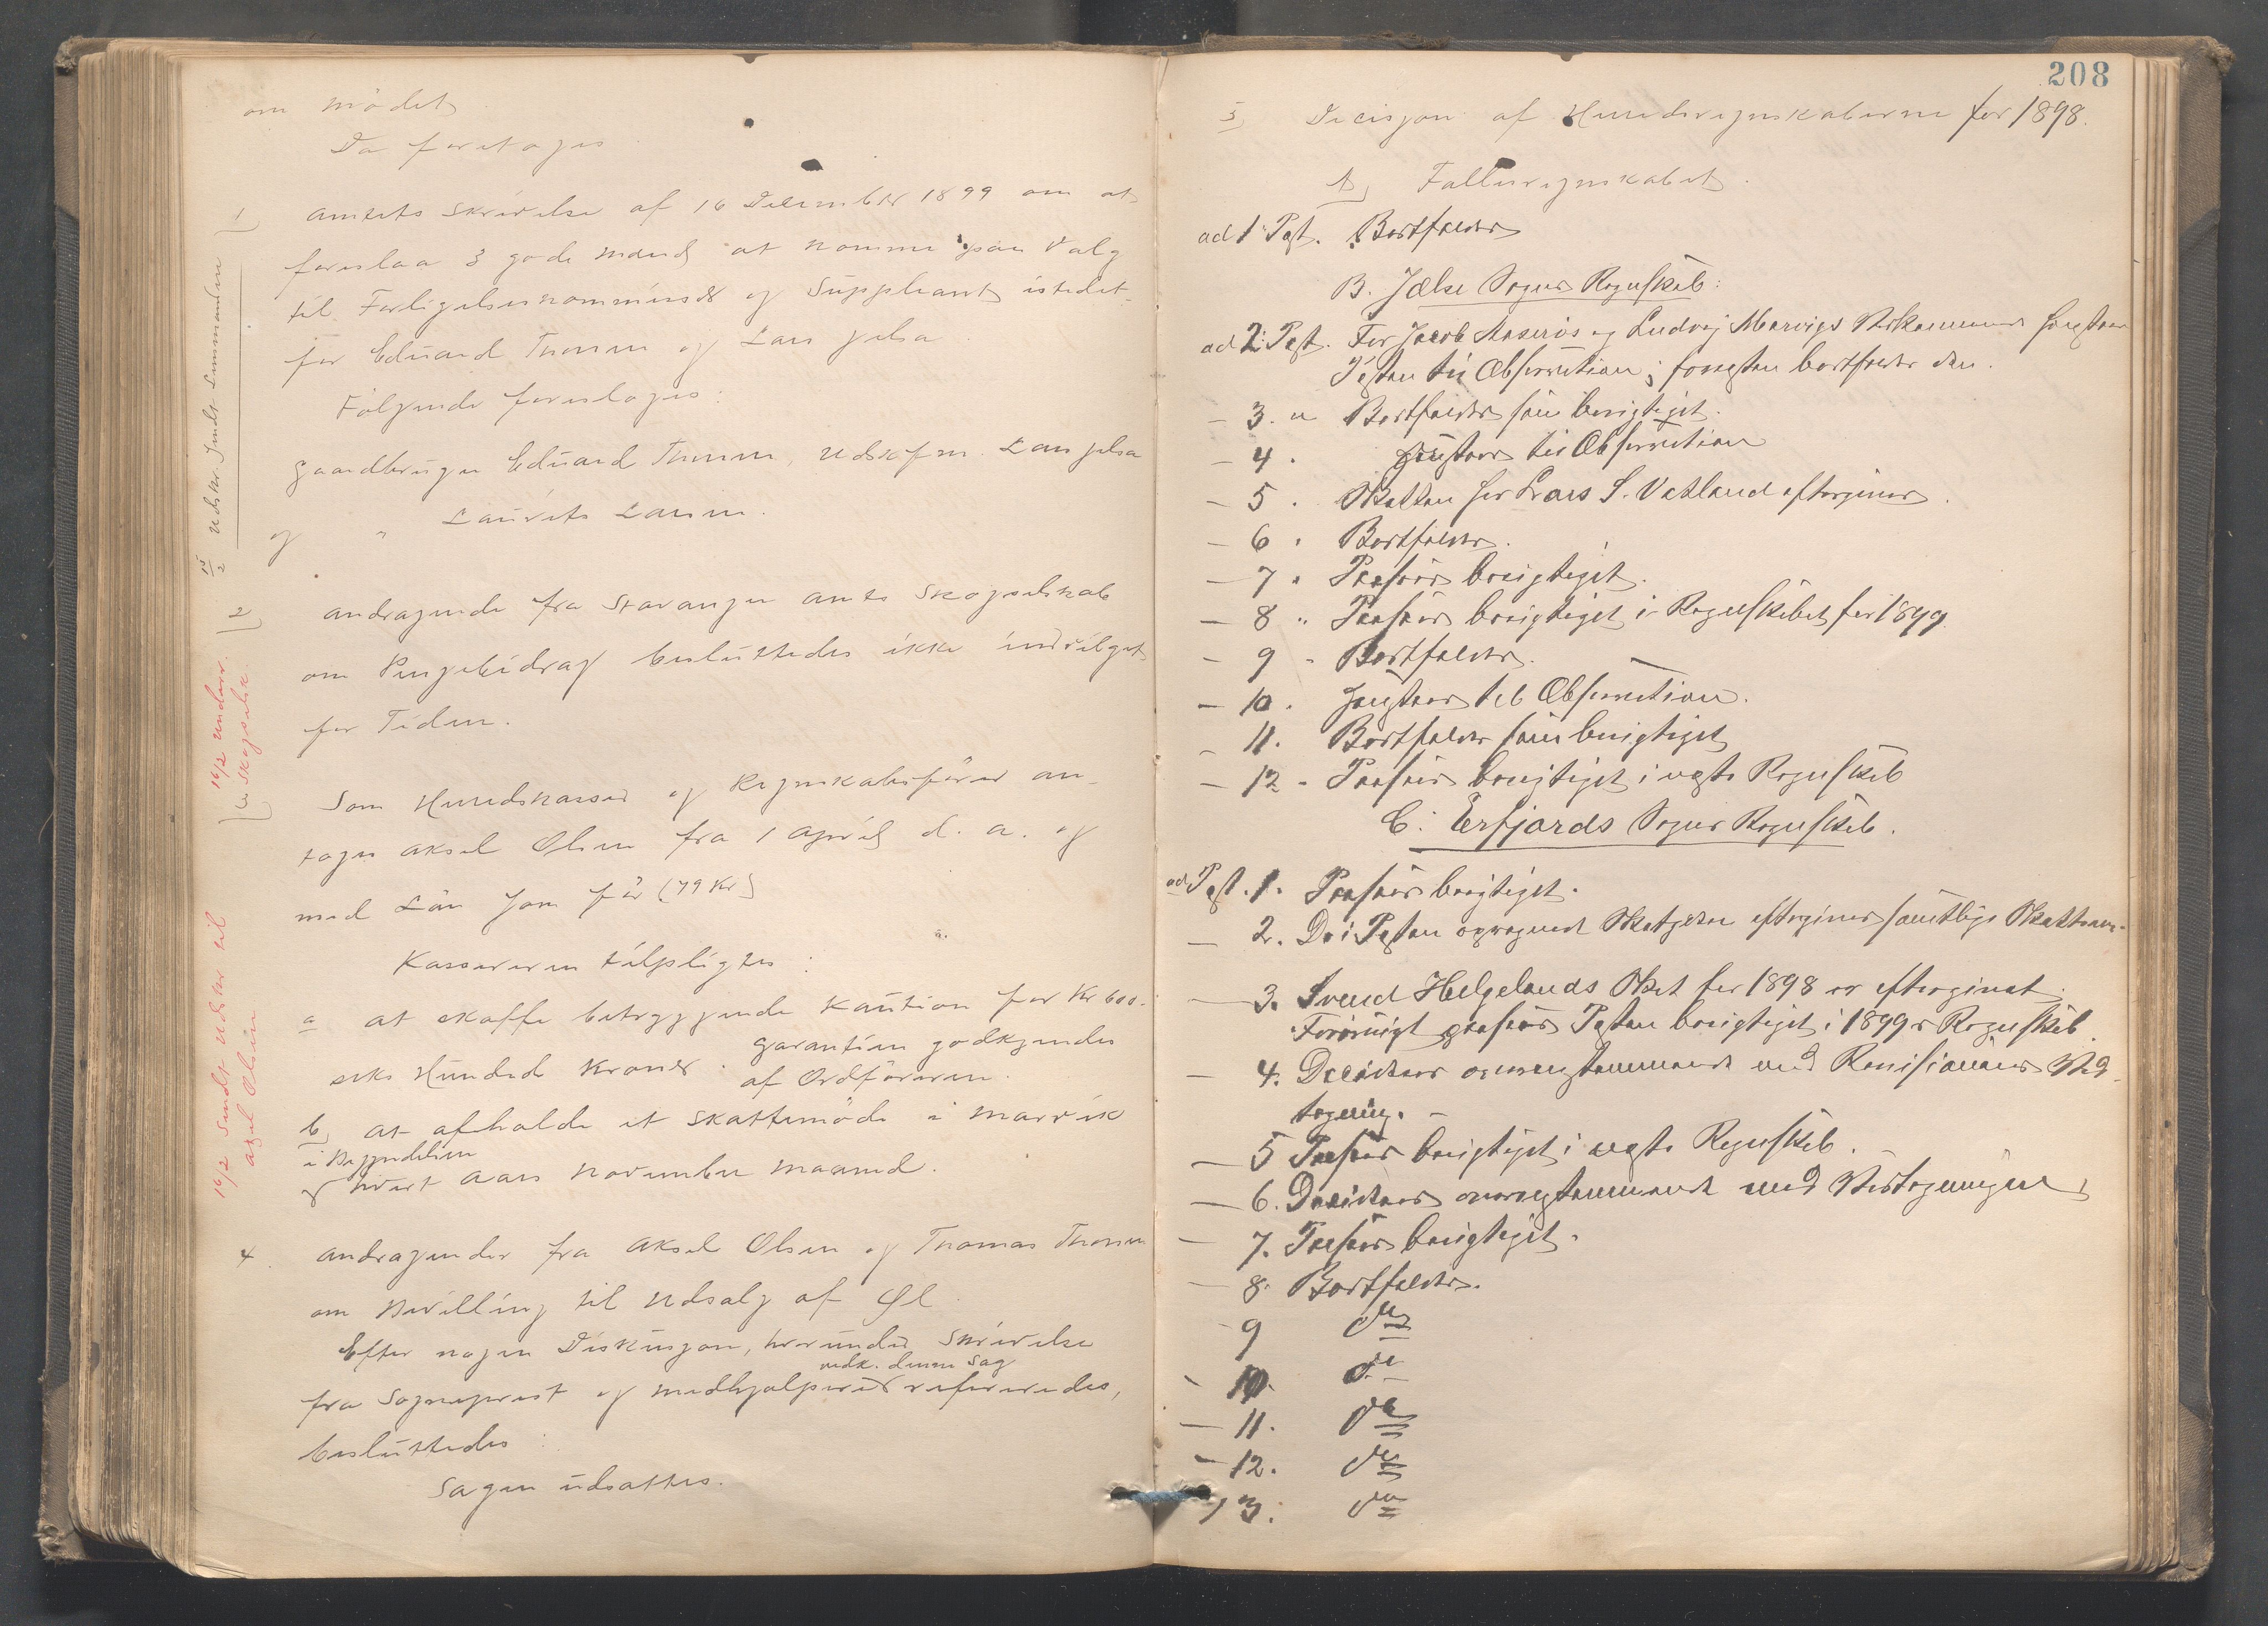 om mödet
Da foretoges
1) Amtets Skrivelse af 16 December 1899 om at
foreslaa 3 gode Mænd at komme paa Valg
til Forligelseskommissær og Suppleant istedet-
for Eduard Thorsen og Lars Jelsa.
Følgende foresloges:
Gaardbruger Eduard Thorsen, Udskifm. Lars Jelsa
og " Laurits Larsen.
15/2 Udskr. Sendt Lensmanden
2) Andragende fra Stavanger Amts Skogselskab
om Pengebidrag besluttedes ikke indvilget
for Tiden.
16/2 underr.
Skogselsk.
Som Herredskasserer og Regnskabsfører an-
toges Aksel Olsen fra 1 April d. a. og
med Løn som før (79 Kr)
Kassereren tilpligtes:
a at skaffe betryggende Kaution for Kr 600-
seks Hundrede Kroner. Garantien godkjendes
af Ordføreren.
b, at afholde et Skattemöde i Marvik
i Begyndelsen
af hvert Aars November Maaned.
16/2 Sendt Udskr til
Axel Olsen
4. Andragender fra Aksel Olsen og Thomas Thorsen
om Bevilling til Udsalg af Øl.
Efter nogen Diskusjon, hvorunder Skrivelse
vedk. denne Sag
fra Sogneprest og Medhjælpere refereredes,
besluttedes:
Sagen udsattes.
208
5, Decisjon af Herredsregnskaberne for 1898.
A, Fællesregnskabet.
ad 1 Post. Bortfalder
B. Jælse Sogns Regnskab:
ad 2 Post. For Jacob og Ludvig Marvigs Vedkommende henstaar
Posten til Observation; forresten bortfalder den.
- 3. " Bortfalder som berigtiget.
- 4 . Henstaar til Observation
- 5 . Skatten for Lars S. Vatland eftergives.
- 6 . Bortfalder.
- 7 . Paasees berigtiget.
- 8 " Paasees berigtiget i Regnskabet for 1899
- 9 - Bortfalder.
- 10 . Henstaar til Observation.
- 11. Bortfalder som berigtiget
- 12 - Paasees berigtiget i næste Regnskab
C. Erfjords Sogns Regnskab.
ad Post. 1. Paasees berigtiget.
- 2. De i Posten opregnede eftergives samtlige
- 3. Svend Helgelands Skat for 1898 er eftergivet.
Forøvrigt paasees Posten berigtiget i 1899s Regnskab.
- 4. Decideres overensstemmende med Revisionens Ved-
tegning. -
- 5 Paasees berigtiget i næste Regnskab.
- 6. Decideres overensstemmende med Vedtegningen
- 7. Paasees berigtiget.
- 8. Bortfalder.
- 9 do
- 10. do
- 11. do
- 12. do
13. do